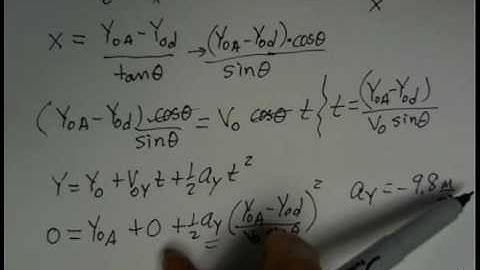 x
X = (Y₀A − Y₀d)/tanθ → (Y₀A − Y₀d)·cosθ/sinθ
(Y₀A − Y₀d)·cosθ/sinθ = V₀ cosθ t } t = (Y₀A − Y₀d)/(V₀ sinθ)
Y = Y₀ + V₀y t + ½ ay t²
0 = Y₀A + 0 + ½ ay ((Y₀A − Y₀d)/(V₀ sinθ))² ay = −9.8 m